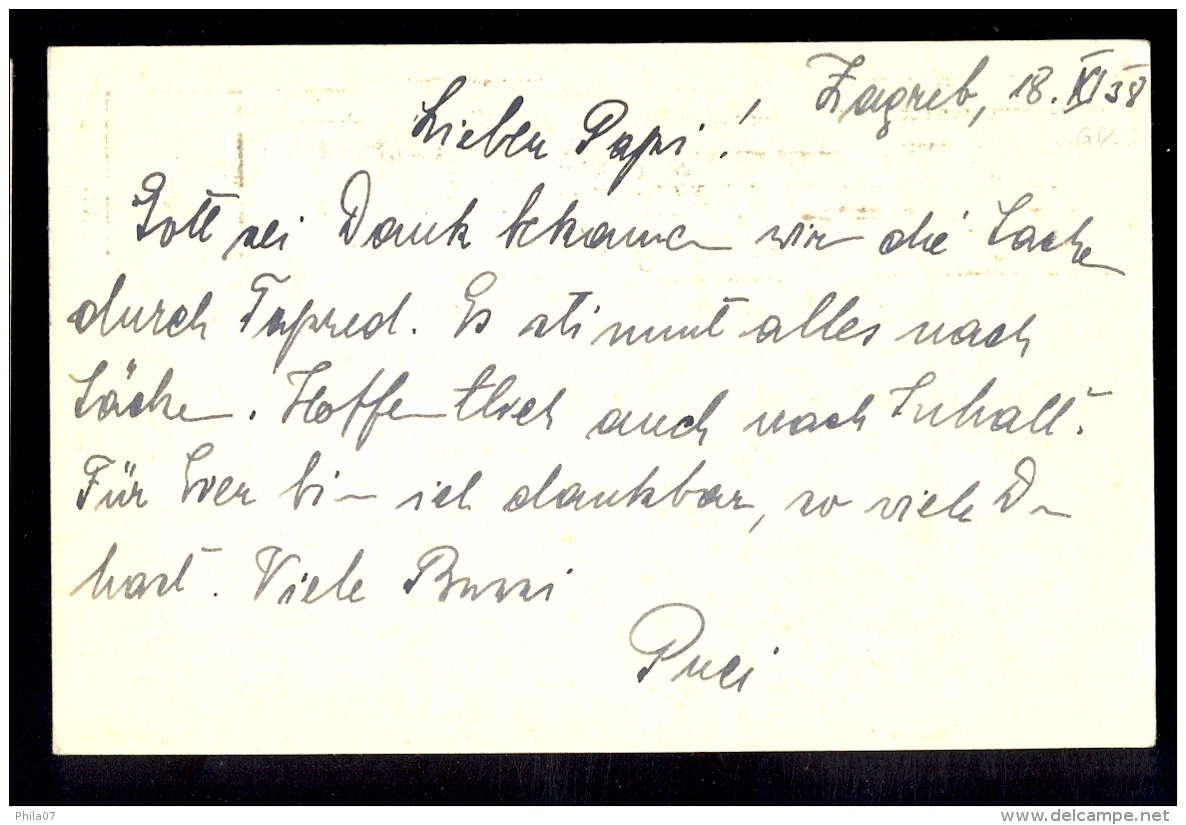 Zagreb, 18. XI 38
Lieber Papi!
Gott sei Dank bekamen wir die Sachen
durch Tapred. Es stimmt alles nach
Säcken. Hoffentlich auch nach Inhalt.
Für Eier bin ich dankbar, so viele Du
hast. Viele Bussi
Puci
Phila07
delcampe.net